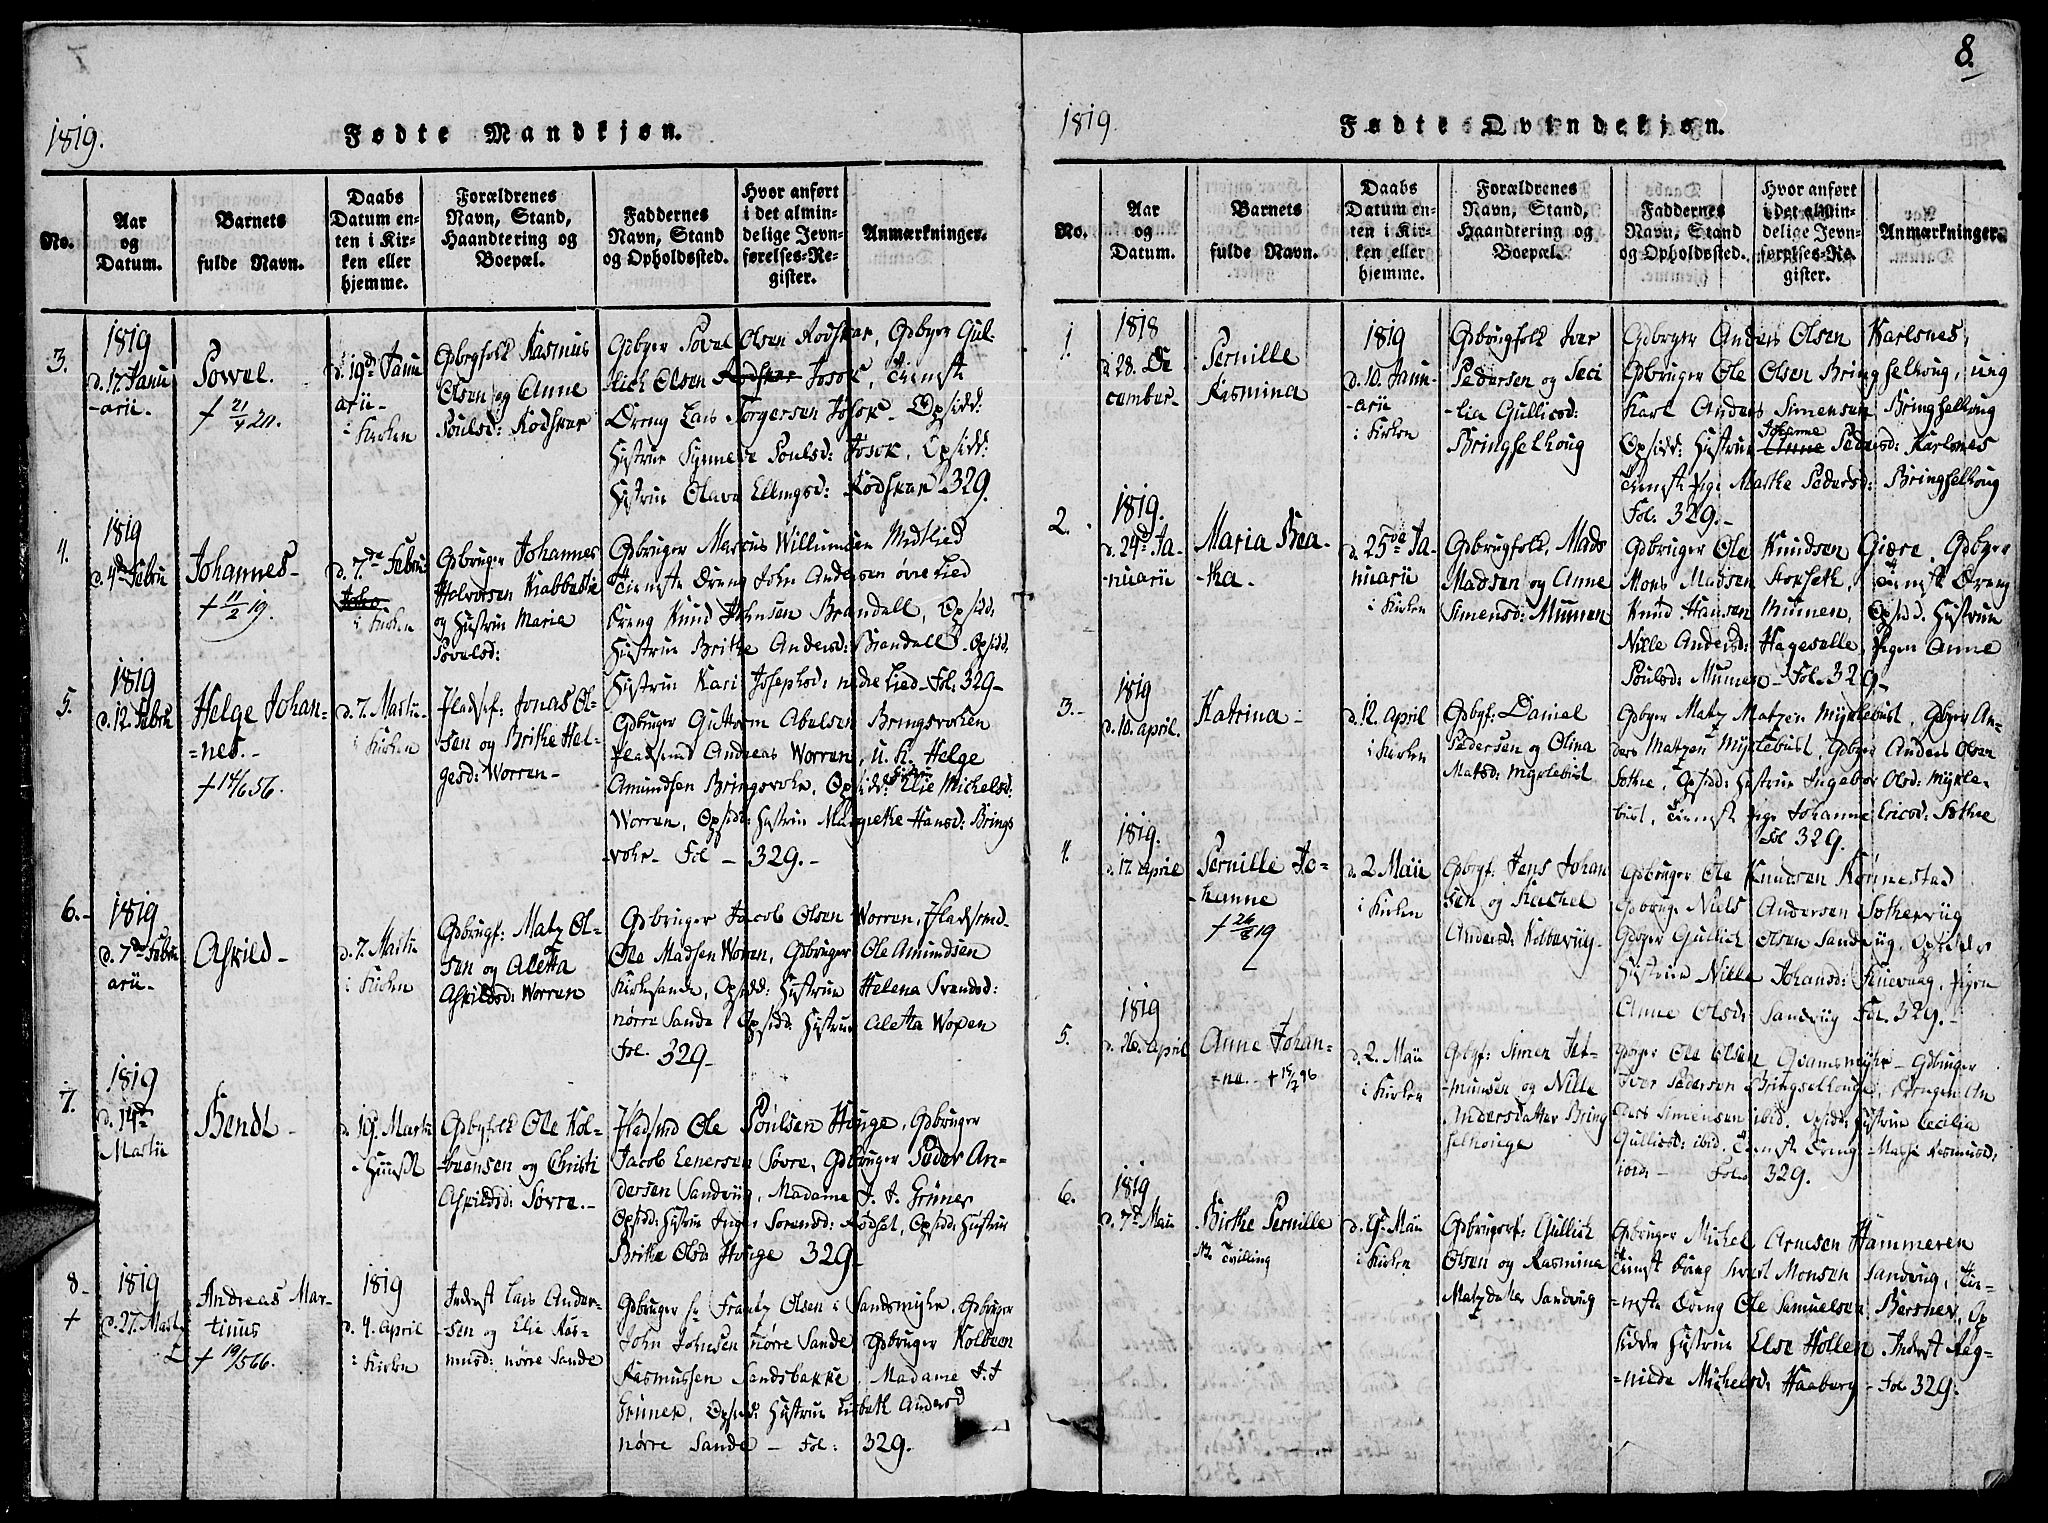 8.
1819.
Fødte Mandkjøn.
No.
Aar
og
Datum.
Barnets
fulde Navn.
Daabs
Datum en-
ten i Kir-
ken eller
hjemme.
Forældrenes
Navn, Stand,
Haandtering og
Boepæl.
Faddernes
Navn, Stand
og Opholdssted.
Hvor anført
i det almin-
delige Jevn-
førelses-Re-
gister.
Anmærkninger.
3.
1819
d. 17. Janu
-arii.
Powel.
+ 21/4 20.
d. 19de Janu
arii-
i Kirken
Gdbrgfolk Rasmus
Olsen og Anne
Poulsd: Rodskar
Gdbger Povel Olsen Rodskar, Gdbger Gul-
lich Olsen Rodskar Josok, Tienste
Dreng Lars Torgersen Josok- Opsidd:
Hustrue Synneve Poulsd: Josok, Opsidd:
Hustrue Olava Ellingsd: Rodskar 329.
4.
1819
d. 4de Febru
Johannes-
+ 11/2 19.
d. 7.de Febru:
i Kirken
Gdbruger Johannes
Halvorsen Knabbestie
og Hustrue Maria
Povelsd:
Gdbruger Marcus Willumsen Midtlied
Tienste Dreng John Andersen øvre Lied
Dreng Knud Johnsen Brandall, Opsidd:
Hustrue Brithe Andersd: Brandall. Opsidd.
Hustrue Kari Josephsd: nedre Lied- Fol: 329-
5.
1819
d. 12. Febru
Helge Johan-
=nes.-
+ 14/6 56.
d. 7. Martii-
i Kirken
Pladsf: Jonas Ol-
sen og Brithe Hel-
gesd: Worren-
Gdbruger Guttorm Abelsen Bringsvohen
Pladsmd Andreas Worren, u. K. Helge
Amundsen Bringsvohr, Opsidd: Elie Michelsd:
Worren, Opsidd: Hustrue Margrethe Hansd: Brings
-vohr- Fol - 329.-
6.-
1819
d. 7de Febru
arii-
Askild-
d. 7. Martii
i Kirken
Gdbrugf: Matz Ol-
sen og Aletta
Askildsd: Worren
Gdbruger Jacob Olsen Worren, Pladsmd-
Ole Madsen Worren, Gdbruger Ole Amundsen
Kirkesande, Opsidd: Hustrue Helena Svendsd:
nørre Sande, Opsidd Hustrue Aletta Woxen
Fol. 329-
7.
1819
d. 14de
Martii
Bendt-
d 19. Martii
Gdbgfolk Ole Kol-
beensen og Christi
Askildsd: Søvre.-
Pladsmd Ole Poulsen Houge, Gdbruger
Jacob Eenersen Søvre, Gdbruger Peder An-
dersen Sandviig, Madame J. J. Grüner
Opsidd: Hustrue Inger Sørensd: Rødset, Opsidd: Hustrue
Brithe Olsd Houge 329-
8-
+
1819
d. 27. Martii
Andreas Mar-
tinus
+ 19/5 66.
1819
d. 4. April
i Kirken
Inderst Lars Ander-
sen og Elie Ras-
musd: nørre Sande
Gdbruger Sr Frantz Olsen i Sandsmyhr, Gdbruger
John Johnsen nørre Sande Gdbruger Kolbeen
Rasmussen Sandsbakke, Madame J. J
Grüner, Opsidd: Hustrue Lisbeth Andersd
nørre Sande - Fol: 329.
1819.
Fødte Qvindekjøn.
No.
Aar
og
Datum.
Barnets
fulde Navn.
Daabs
Datum en-
ten i Kir-
ken eller
hjemme.
Forældrenes
Navn, Stand,
Haandtering og
Boepæl.
Faddernes
Navn, Stand
og Opholdssted.
Hvor anført
i det almin-
delige Jevn-
førelses-Re-
gister.
Anmærkninger.
1.
1818
d 28. De
cember-
Pernille
Rasmina
1819
d. 10. Janu-
arii
i Kirken
Gdbrugfolk Iver
Pedersen og Ceci
-lia Gullicsd:
Bringselhoug
Gdbruger Anders Olsen Karlsnes,
Gdbruger Ole Olsen Bringselhoug, ung
Karl Anders Simensen Bringselhoug
Opsidd: Hustrue Johanne Anne Pedersd: Karlsnes
Tienst Pige Marthe Pedersd: Bringselhoug
Fol. 329.-
2.
1819.
d. 24de Ja-
-nuarii
Maria Bea-
-tha-
d. 25de Ja-
nuarii
i Kirken
Gdbrugfolk. Mads
Madsen og Anne
Simensd: Mumen
Gdbruger Ole Knudsen Giære, Gdbger
Mons Madsen Storseth, Tienst Dreng
Knud Hansen Mumen, Opsid. Hustrue
Nille Andersd: Hageselle, Pigen Anne
Poulsd: Mumen- Fol. 329-
3.-
1819
d. 10. april.
Katrina-
d. 12. April
i Kirken
Gdbgf: Daniel
Pedersen og Olina
Matsd: Myklebust
Gdbger Matz Matzen Myklebust, Gdbger An-
ders Matzen Myklebust, Gdbger Anders Olsen
Sothe, Opsidd: Hustrue Ingebor Olsd: Mykle-
bust, Tienst Pige Johanne Ericsd: Sothee
Fol 329.
4.
1819.
d. 17. April
Pernille Jo-
-hanne
+ 26/8 19
d. 2 Maii
i Kirken
Gdbrgf: Jens Johan
sen og Rachel
Andersd: Kolbeviig-
Gdbruger Ole Knudsen Rønnestad
Gdbruge Niels Andersen Sotheviig
Gdbger Gullich Olsen Sandviig, Opsidder
Hustrue Nille Johansd: Kuevaag, Pigen
Anne Olsd: Sandviig Fol. 329.-
5.
1819
d. 26. April
Anne Johan-
=na.- + 15/2 96
d. 2. Maii
i Kirken
Gdbgf: Simen Jet-
munsen og Nille
Andersdatter Bring
selhouge
Gdbger Ole Olsen Qvamsmyhr- Gdbruger
Iver Pedersen Bringselhouge, Drengen An
ders Simensen ibid. Opsidd: Hustrue Cecilia
Gullicsd: ibid, Tienst Dreng -Marthe Rasmusd:
ibid- Fol. 329.
6.
1819
d. 7de Maii
Birthe Pernille
Nb Tvilling
d. 9. Maii
i Kirken
Gdbrugerf: Gullich
Olsen og Rasmina
Matzdatter Sandviig
Gdbruger Michel Arnesen Hammeren
Tienst Dreng Knud Monsen Sandviig, Tie-
=neste Dreng Ole Samuelsen Børsnes, Op
sidder Hustrue Else Hollen Inderst Rag-
=nilde Michelsd: Haaberg- Fol 329.